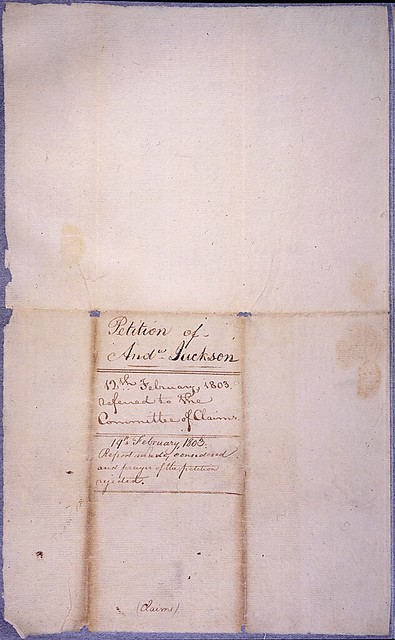 Petition of
And.w Jackson
12th February, 1803
referred to the
Committee of Claims.
19th February, 1803.
Report made, considered
and prayer of the petition
rejected.
(Claims)